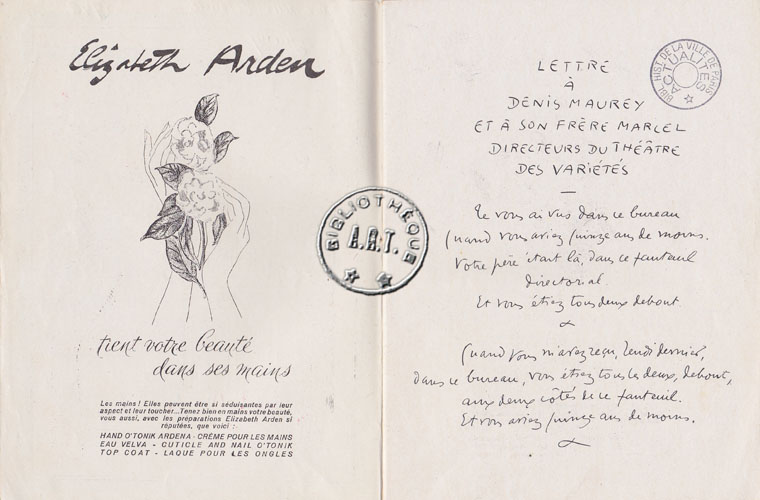 Elizabeth Arden
tient votre beauté
dans ses mains
Les mains ! Elles peuvent être si séduisantes par leur
aspect et leur toucher...Tenez bien en mains votre beauté,
vous aussi, avec les preparations Elizabeth Arden si
réputées, que voici :
HAND O'TONIK ARDENA - CRÈME POUR LES MAINS
EAU VELVA - CUTICLE AND NAIL O'TONIK
TOP COAT - LAQUE POUR LES ONGLES
BIBLIOTHÈQUE
A.R.T.
BIBL. HIST. DE LA VILLE DE PARIS
ACTUALITÉS
LETTRE
À
DENIS MAUREY
ET À SON FRÈRE MARCEL
DIRECTEURS DU THÉÂTRE
DES VARIÉTÉS
Je vous ai vus dans ce bureau
quand vous aviez quinze ans de moins.
Votre père était là, dans ce fauteuil
directorial.
Et vous étiez tous deux debout.
Quand vous m'avez reçu, lundi dernier,
dans ce bureau, vous étiez tous les deux, debout,
aux deux côtés de ce fauteuil.
Et vous aviez quinze ans de moins.